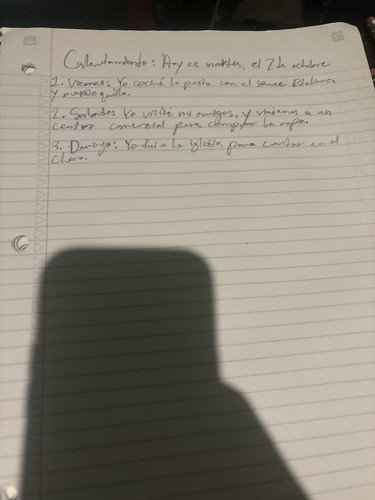 Calentamiento: Hoy es martes, el 7 de octubre
1. Viernes: Yo cociné la pasta con el sauce Italiano
y mantequilla.
2. Sabado: Yo visité mi amigos, y a un
centro comercial para comprar la ropa.
3. Domingo: Yo fui a la iglesia para cantar en el
choro.